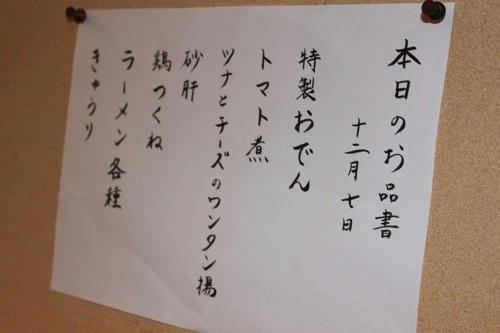 本日のお品書
十二月七日
特製おでん
トマト煮
ツナとチーズのワンタン揚
砂肝
鶏つくね
ラーメン各種
きゅうり